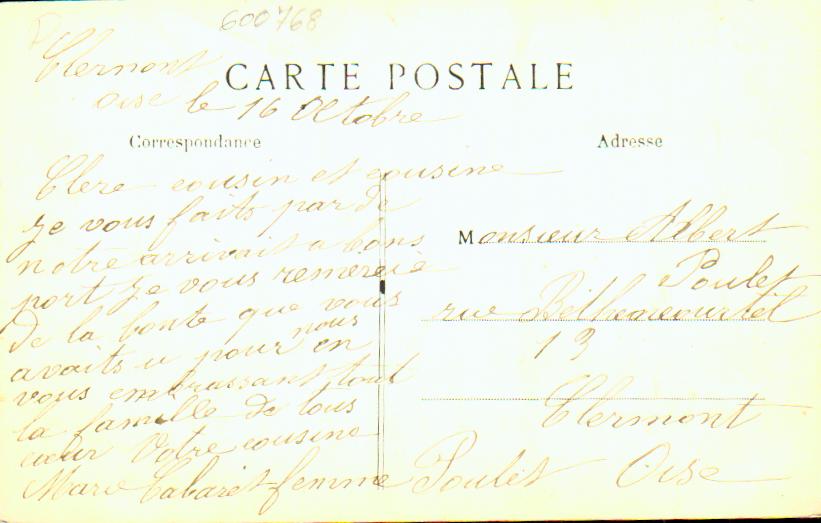 600768
Clermont
CARTE POSTALE
Oise le 16 Octobre
Correspondance
Adresse
Chere cousin et cousine
je vous faits par de
notre arrivait a bons
port je vous remercie
de la bonte que vous
avaits u pour nous en
vous embrassant tout
la famille de tous
cœur Votre cousine
Marie Cabaret femme Poulet
Monsieur Albert
Poulet
rue
13
Clermont
Oise